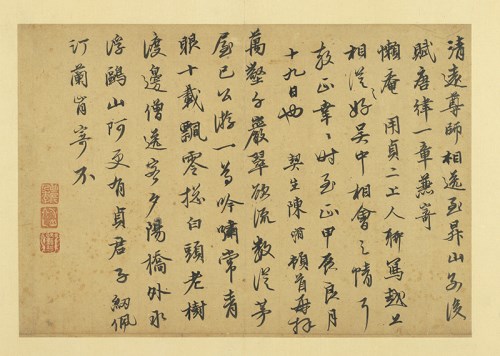 清遠尊師相送至昇山別後
賦唐律一章兼寄
懶庵用貞二上人聊寫越上
相從之好吳中相會之情
教正幸幸時至正甲辰良月
十九日也 契生陳頓首再拜
萬壑千巖翠欲流數從茅
屋已公游一為吟嘯常青
眼十載飄零總白頭老樹
渡邊僧送客夕陽橋外水
浮鷗山阿更有貞君子紉佩
汀蘭肯寄不